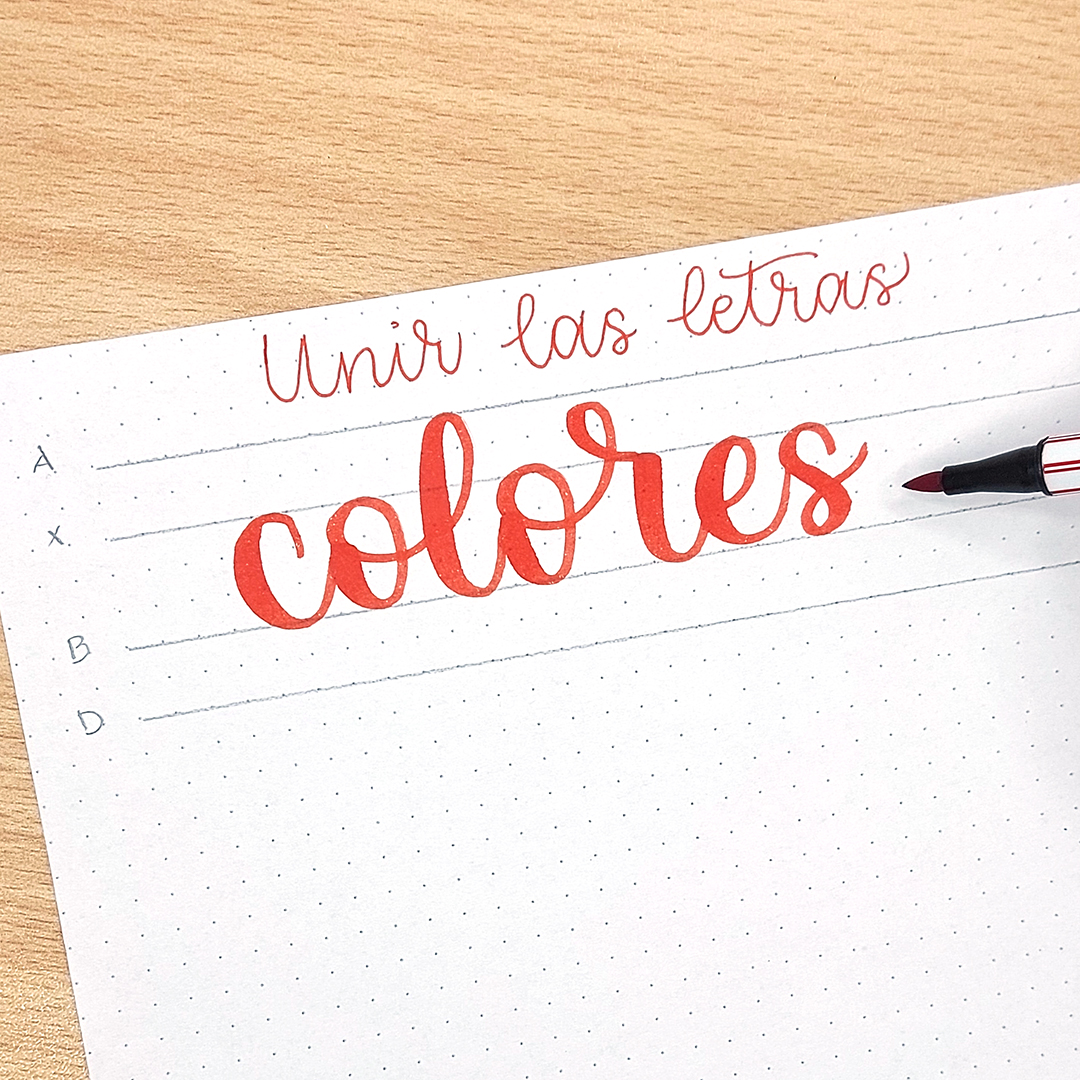 Unir las letras
A
colores
x
B
D